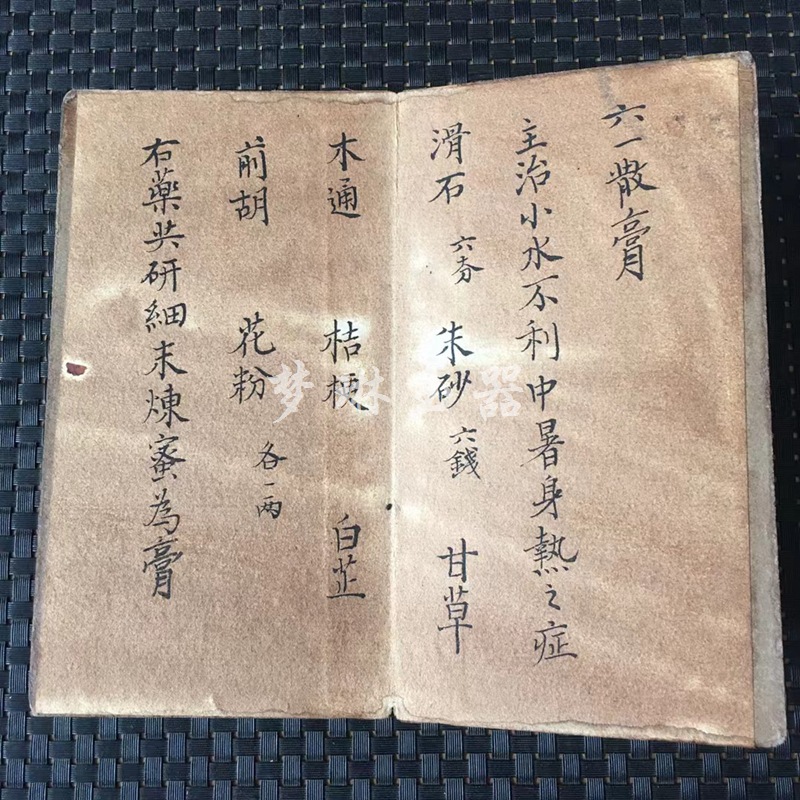 六一散膏
主治小水不利中暑身熱之症
滑石 六夯 朱砂 六錢 甘草
木通 桔梗 白芷
前胡 花粉 各一兩
右藥共研細末煉蜜為膏